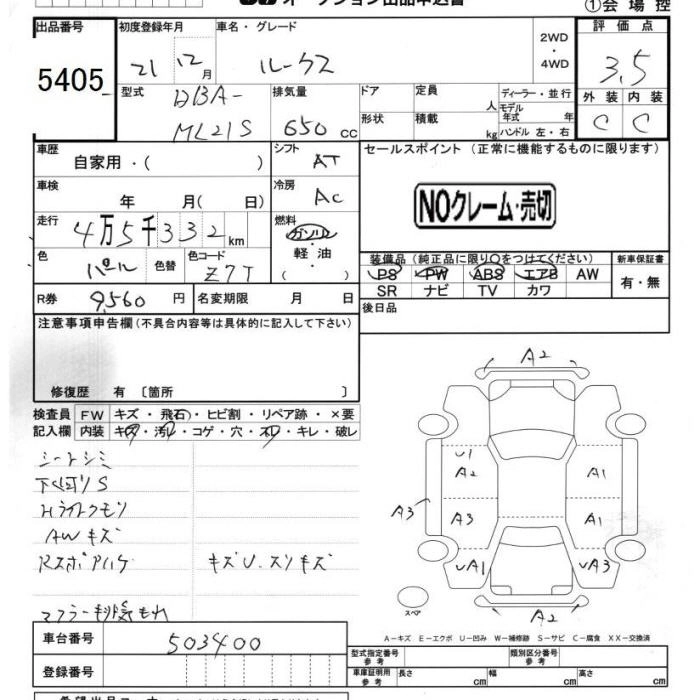 オークション出品申込書
①会場控
出品番号 初度登録年月 車名・グレード 2WD・4WD 評価点
5405 21 12月 ルークス 3.5
型式 DBA-ML21S 排気量 650cc
ドア 定員 人 ディーラー・並行
モデル年式 年
形状 積載 kg ハンドル 左・右
外装 内装
C C
車歴 自家用・( )
シフト AT
セールスポイント (正常に機能するものに限ります)
車検 年 月( 日)
冷房 AC
NOクレーム・売切
走行 4万5千332km
燃料 ガソリン・軽油・( )
色 パール 色替 色コード Z7T
装備品(純正品に限り○をつけてください) 新車保証書
PS PW ABS エアB AW 有・無
SR ナビ TV カワ
R券 9,560円 名変期限 月 日
後日品
注意事項申告欄(不具合内容等は具体的に記入して下さい)
修復歴 有〔箇所 〕
検査員 FW キズ・飛石・ヒビ割・リペア跡・×要
記入欄 内装 キズ・汚レ・コゲ・穴・スレ・キレ・破レ
シートシミ
下回りS
Hライトクモリ
AWキズ
Rスポアハゲ キズU.スリキズ
マフラー排気もれ
A2
U1
A2 A1
A3 A3 A1
UA1 UA3
A2
スペア
A-キズ E-エクボ U-凹み W-補修跡 S-サビ C-腐食 XX-交換済
車台番号 503400
型式指定番号 参考 類別区分番号 参考
登録番号
車庫証明用 参考 長さ cm 幅 cm 高さ cm